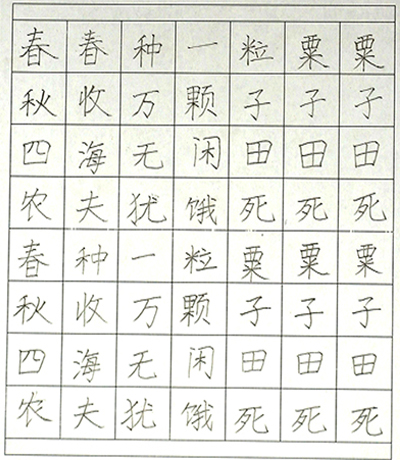 春春种一粒粟粟
秋收万颗子子子
四海无闲田田田
农夫犹饿死死死
春种一粒粟粟粟
秋收万颗子子子
四海无闲田田田
农夫犹饿死死死